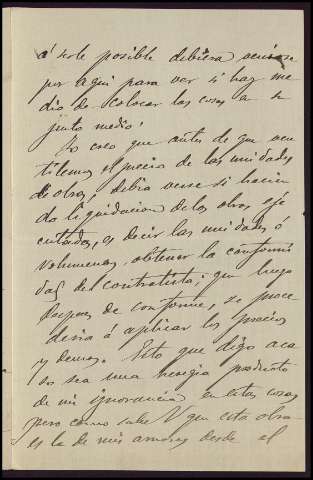 á serle posible debiera venirse
por aquí para ver si hay me
dio de colocar las cosas a su
justo medio.
Yo creo que antes de que ven
tilemos el precio de las unidades
de obras, debia verse si hacien
do liquidacion de las obras eje
cutadas, es decir las unidades ó
volumenes, obtener la conformi
dad del contratista; que luego
despues de conforme, se proce
deria á aplicar los precios
y demas. Esto que digo aca
so sea una heregia producto
de mi ignorancia en estas cosas
pero como sabe V. que esta obra
es la de mis amores desde el